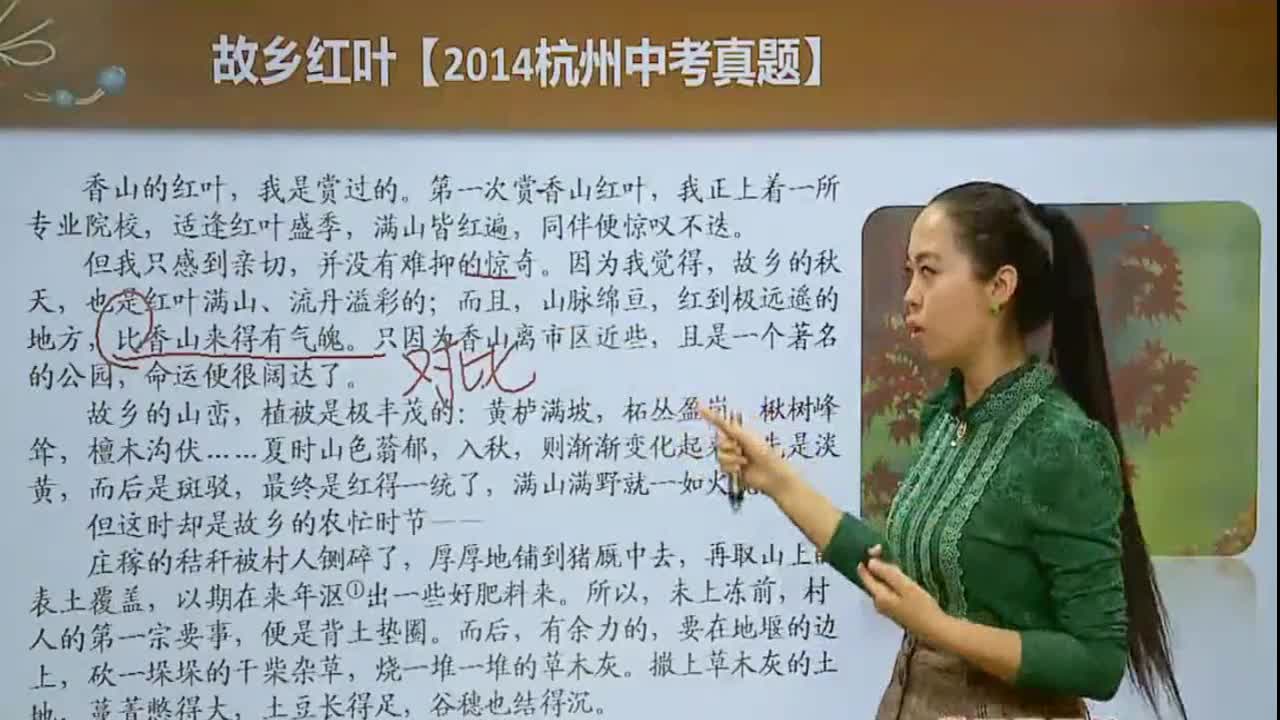 故乡红叶【2014杭州中考真题】
香山的红叶，我是赏过的。第一次赏香山红叶，我正上着一所
专业院校，适逢红叶盛季，满山皆红遍，同伴便惊叹不迭。
但我只感到亲切，并没有难抑的惊奇。因为我觉得，故乡的秋
天，也是红叶满山、流丹溢彩的；而且，山脉绵亘，红到极远遥的
地方，比香山来得有气魄。只因为香山离市区近些，且是一个著名
的公园，命运便很阔达了。
对比
故乡的山峦，植被是极丰茂的：黄栌满坡，柘丛盈岗，楸树峰
耸，檀木沟伏……夏时山色蓊郁，入秋，则渐渐变化起来 先是淡
黄，而后是斑驳，最终是红得一统了，满山满野就一如火
但这时却是故乡的农忙时节——
庄稼的秸秆被村人铡碎了，厚厚地铺到猪厩中去，再取山上的
表土覆盖，以期在来年沤①出一些好肥料来。所以，未上冻前，村
人的第一宗要事，便是背土垫圈。而后，有余力的，要在地堰的边
上，砍一垛垛的干柴杂草，烧一堆一堆的草木灰。撒上草木灰的土
地，蔓菁憋得大，土豆长得足，谷穗也结得沉。